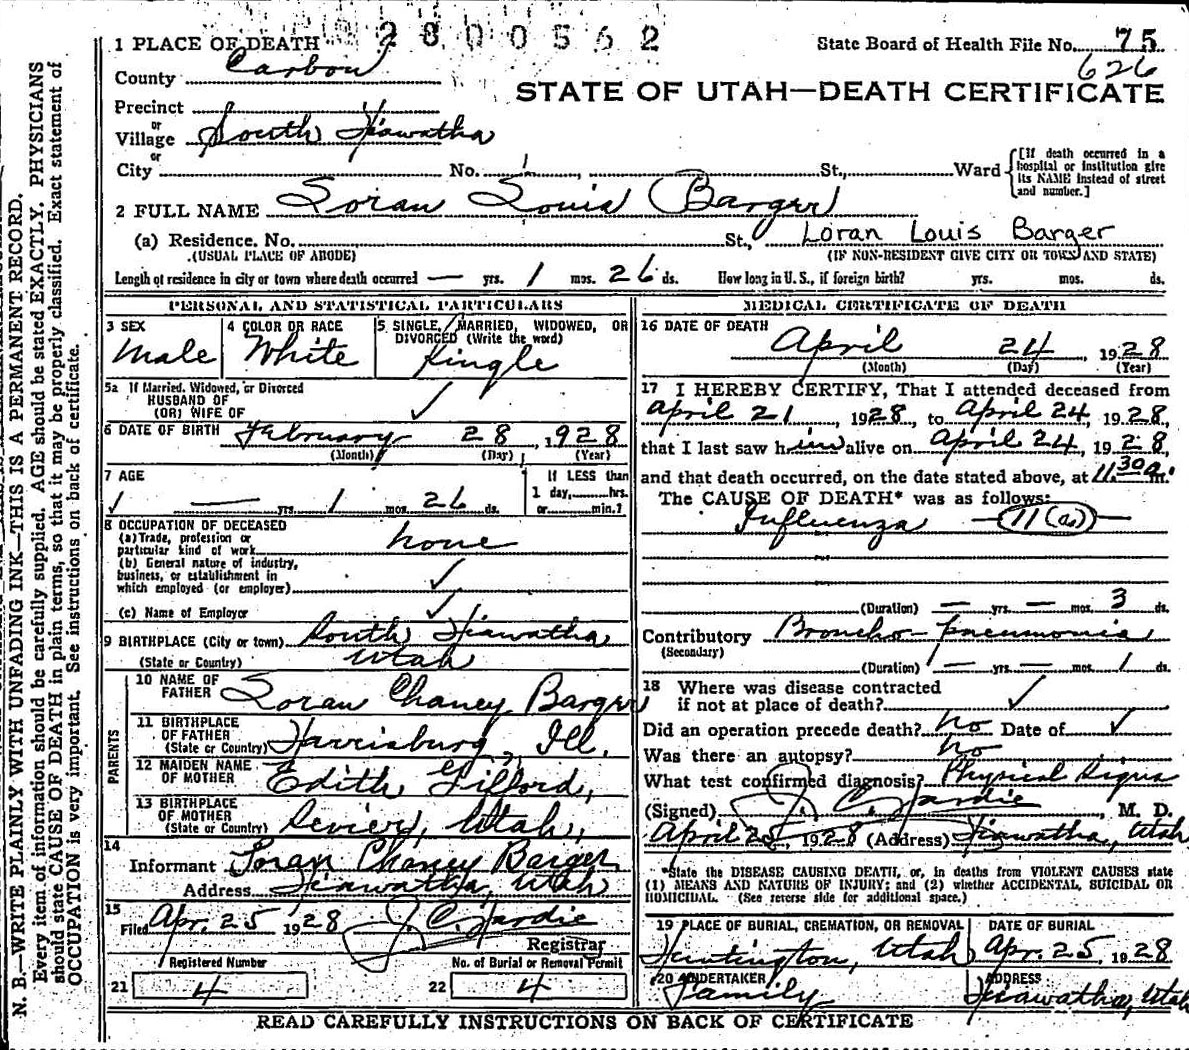 2800562
1 PLACE OF DEATH
State Board of Health File No. 75
626
County Carbon
STATE OF UTAH—DEATH CERTIFICATE
Precinct
or
Village South Hiawatha
or
City No. St., Ward
[If death occurred in a hospital or institution give its NAME instead of street and number.]
2 FULL NAME Loran Louis Barger
(a) Residence. No. St., Loran Louis Barger
(USUAL PLACE OF ABODE) (IF NON-RESIDENT GIVE CITY OR TOWN AND STATE)
Length of residence in city or town where death occurred — yrs. 1 mos. 26 ds. How long in U. S., if foreign birth? yrs. mos. ds.
PERSONAL AND STATISTICAL PARTICULARS
3 SEX
Male
4 COLOR OR RACE
White
5 SINGLE, MARRIED, WIDOWED, OR
DIVORCED (Write the word)
Single
5a If Married, Widowed, or Divorced
HUSBAND OF
(OR) WIFE OF ✓
6 DATE OF BIRTH February 28, 1928
(Month) (Day) (Year)
7 AGE
If LESS than
1 day, hrs.
or min.?
✓ — yrs. 1 mos. 26 ds.
8 OCCUPATION OF DECEASED
(a) Trade, profession or
particular kind of work none
(b) General nature of industry,
business, or establishment in
which employed (or employer) ✓
(c) Name of Employer ✓
9 BIRTHPLACE (City or town) South Hiawatha
(State or Country) Utah
PARENTS
10 NAME OF
FATHER Loran Chaney Barger
11 BIRTHPLACE
OF FATHER
(State or Country) Harrisburg, Ill.
12 MAIDEN NAME
OF MOTHER Edith Gifford,
13 BIRTHPLACE
OF MOTHER
(State or Country) Sevier, Utah,
14
Informant Loran Chaney Barger
Address Hiawatha, Utah
15
Filed Apr. 25 1928 J. C. Hardie
Registrar
Registered Number
21 4
No. of Burial or Removal Permit
22 4
MEDICAL CERTIFICATE OF DEATH
16 DATE OF DEATH
April 24, 1928
(Month) (Day) (Year)
17 I HEREBY CERTIFY, That I attended deceased from
April 21, 1928, to April 24, 1928,
that I last saw him alive on April 24, 1928,
and that death occurred, on the date stated above, at 11.30 a.m.
The CAUSE OF DEATH* was as follows:
Influenza — 11(a) —
(Duration) — yrs. — mos. 3 ds.
Contributory Broncho-pneumonia
(Secondary)
(Duration) — yrs. — mos. 1 ds.
18 Where was disease contracted
if not at place of death? ✓
Did an operation precede death? no Date of ✓
Was there an autopsy? no
What test confirmed diagnosis? Physical Signs
(Signed) J. C. Hardie, M. D.
April 25, 1928 (Address) Hiawatha, Utah
*State the DISEASE CAUSING DEATH, or, in deaths from VIOLENT CAUSES state
(1) MEANS AND NATURE OF INJURY; and (2) whether ACCIDENTAL, SUICIDAL OR
HOMICIDAL. (See reverse side for additional space.)
19 PLACE OF BURIAL, CREMATION, OR REMOVAL
Huntington, Utah
DATE OF BURIAL
Apr. 25, 1928
20 UNDERTAKER
Family
ADDRESS
Hiawatha, Utah
READ CAREFULLY INSTRUCTIONS ON BACK OF CERTIFICATE
N. B.—WRITE PLAINLY WITH UNFADING INK—THIS IS A PERMANENT RECORD.
Every item of information should be carefully supplied. AGE should be stated EXACTLY. PHYSICIANS
should state CAUSE OF DEATH in plain terms, so that it may be properly classified. Exact statement of
OCCUPATION is very important. See instructions on back of certificate.